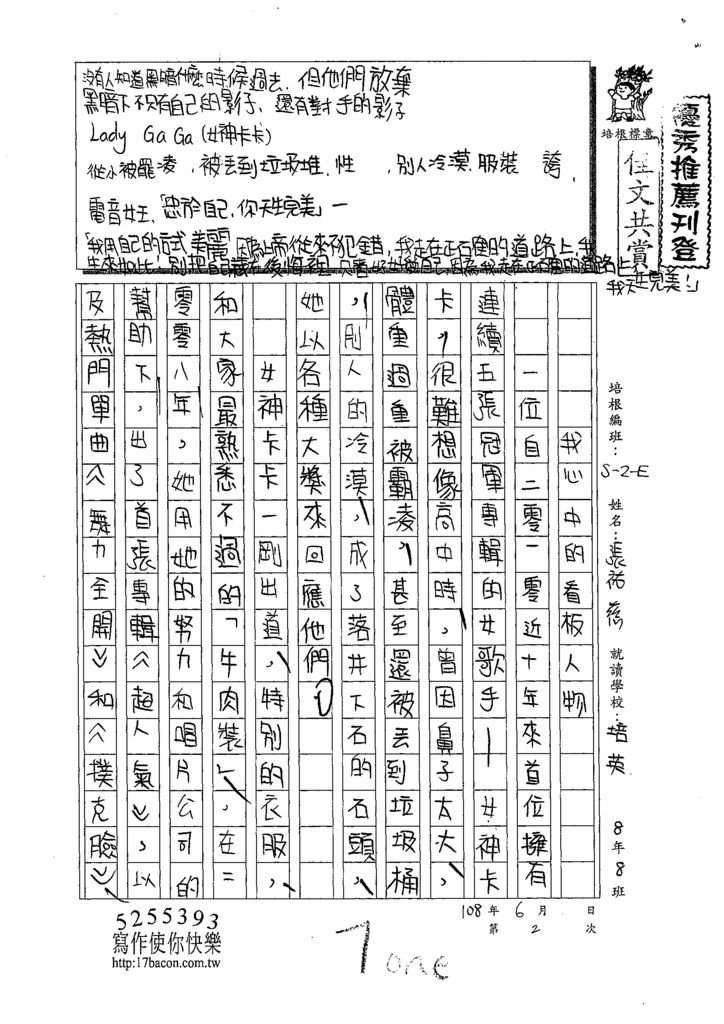 優秀推薦刊登
佳文共賞
培根標章
沒有人知道黑暗什麼時候過去,但他們放棄
黑暗下不只有自己的影子、還有對手的影子
Lady Ga Ga(女神卡卡)
從小被罷凌,被丟到垃圾堆.性 ,別人冷漠.服裝 誇,
電音女王、「忠於自己,你天生完美」一
我走在正確的道路上我
我天生完美!」
培根編班:S-2-E 姓名:張祐慈 就讀學校:培英 8年8班
108年6月 日
第2次
我心中的看板人物
一位自二零一零近十年來首位擁有
連續五張冠軍專輯的女歌手—女神卡
卡,很難想像高中時,曾因鼻子太大,
體重過重被霸凌,甚至還被丟到垃圾桶
,別人的冷漠,成了落井下石的石頭,
她以各種大獎來回應他們。
女神卡卡一剛出道,特別的衣服,
和大家最熟悉不過的「牛肉裝」,在二
零零八年,她用她的努力和唱片公司的
幫助下,出了首張專輯︿超人氣﹀,以
及熱門單曲︿舞力全開﹀和︿撲克臉﹀
5255393
寫作使你快樂
http:17bacon.com.tw
7 one